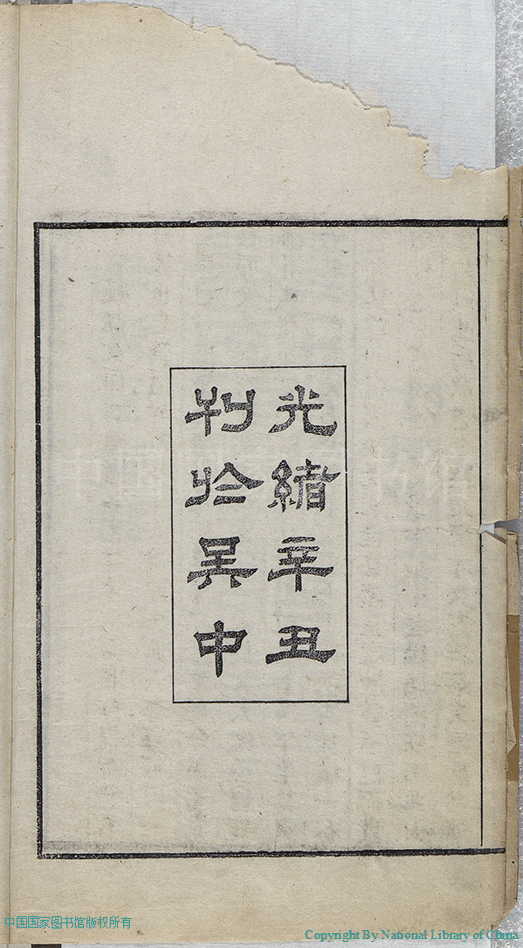 光緒辛丑
刊於吴中
中国国家图书馆版权所有
Copyright By National Library of China